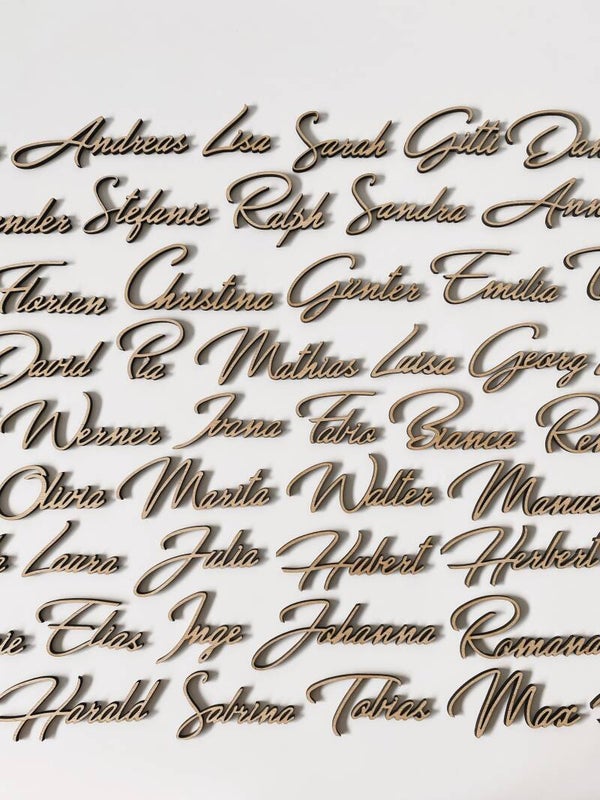 Andreas Lisa Sarah Gitti Dan
ender Stefanie Ralph Sandra Ann
Florian Christina Günter Emilia
David Pia Mathias Luisa Georg
Werner Ivana Fabio Bianca Re
Olivia Marita Walter Manue
Laura Julia Hubert Herbert
ie Elias Inge Johanna Romana
Harald Sabrina Tobias Max